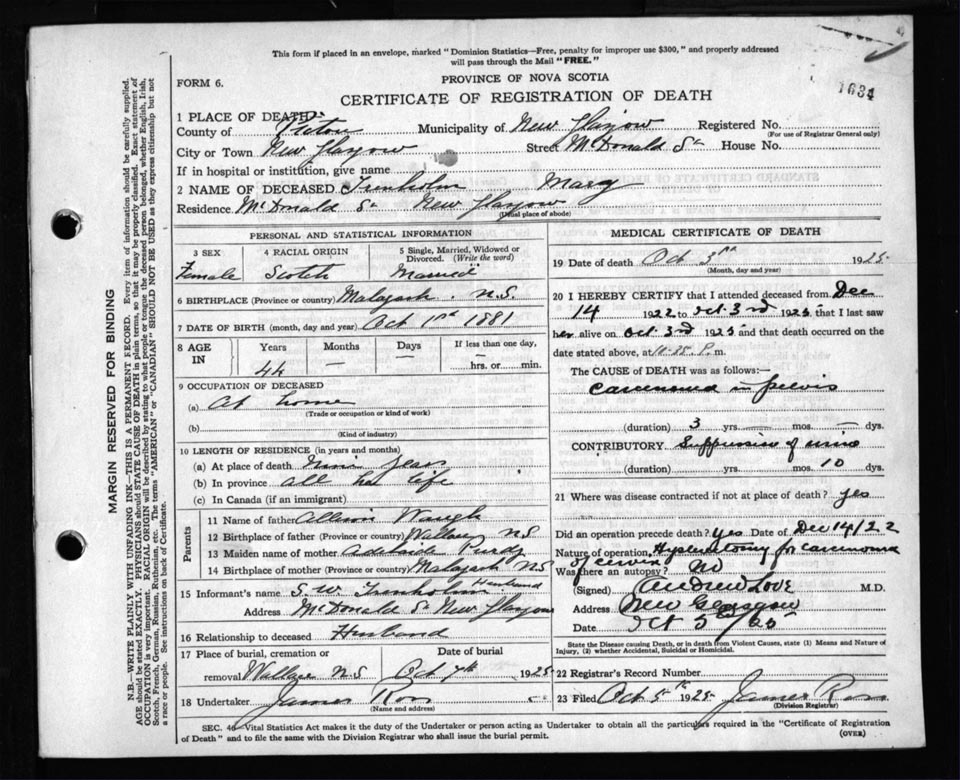 This form if placed in an envelope, marked "Dominion Statistics—Free, penalty for improper use $300," and properly addressed
will pass through the Mail "FREE."
FORM 6.
PROVINCE OF NOVA SCOTIA
1634
CERTIFICATE OF REGISTRATION OF DEATH
1 PLACE OF DEATH
County of Pictou Municipality of New Glasgow Registered No.
(For use of Registrar General only)
City or Town New Glasgow Street McDonald St House No.
If in hospital or institution, give name
2 NAME OF DECEASED Trenholm Mary
Residence McDonald St New Glasgow
(Usual place of abode)
PERSONAL AND STATISTICAL INFORMATION
3 SEX 4 RACIAL ORIGIN 5 Single, Married, Widowed or Divorced. (Write the word)
Female Scotch Married
6 BIRTHPLACE (Province or country) Malagash . N.S.
7 DATE OF BIRTH (month, day and year) Oct 1st 1881
8 AGE IN Years Months Days If less than one day,
44 — — — hrs. or min.
9 OCCUPATION OF DECEASED
(a) At home
(Trade or occupation or kind of work)
(b)
(Kind of industry)
10 LENGTH OF RESIDENCE (in years and months)
(a) At place of death Nine Years
(b) In province All her life
(c) In Canada (if an immigrant)
Parents
11 Name of father Waugh
12 Birthplace of father (Province or country) Wallace N.S.
13 Maiden name of mother Adelaide Purdy
14 Birthplace of mother (Province or country) Malagash N.S
15 Informant's name S.W. Trenholm Husband
Address McDonald St New Glasgow
16 Relationship to deceased Husband
17 Place of burial, cremation or removal Date of burial
Wallace N.S. Oct 7th 1925
18 Undertaker James Ross
(Name and address)
MEDICAL CERTIFICATE OF DEATH
19 Date of death Oct 3rd 1925
(Month, day and year)
20 I HEREBY CERTIFY that I attended deceased from Dec
14 1922 to Oct. 3rd 1925 that I last saw
her alive on Oct 3rd 1925 and that death occurred on the
date stated above, at P.m.
The CAUSE of DEATH was as follows:—
Carcenoma in pelvis
(duration) 3 yrs. — mos. — dys.
CONTRIBUTORY Suppression of urine
(duration) yrs. mos. 10 dys.
21 Where was disease contracted if not at place of death? yes
Did an operation precede death? Yes Date of Dec 14/22
Nature of operation Hysterectomy for carcenoma
of cervix
Was there an autopsy? No
(Signed) Andrew Love M.D.
Address New Glasgow
Date Oct 5/25
State the Disease causing Death, or in death from Violent Causes, state (1) Means and Nature of
Injury, (2) whether Accidental, Suicidal or Homicidal.
22 Registrar's Record Number
23 Filed Oct 5th 1925 James Ross
(Division Registrar)
SEC. 40—Vital Statistics Act makes it the duty of the Undertaker or person acting as Undertaker to obtain all the particulars required in the "Certificate of Registration
of Death" and to file the same with the Division Registrar who shall issue the burial permit.
(OVER)
MARGIN RESERVED FOR BINDING
N.B.—WRITE PLAINLY WITH UNFADING INK—THIS IS A PERMANENT RECORD. Every item of information should be carefully supplied.
AGE should be stated EXACTLY. PHYSICIANS should STATE CAUSE OF DEATH in plain terms, so that it may be properly classified. Exact statement of
OCCUPATION is very important. RACIAL ORIGIN will be described by stating to what people or tongue the deceased person belonged, whether English, Irish,
Scotch, French, German, Russian, Ruthenian, etc. The terms "AMERICAN" or "CANADIAN" SHOULD NOT BE USED as they express citizenship but not
a race or people. See instructions on back of Certificate.